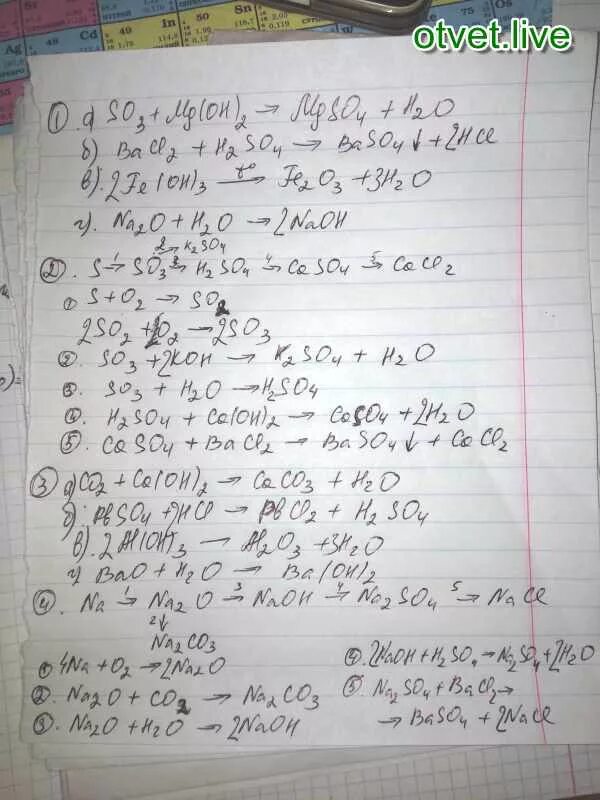 otvet.live
Ag
Cd
In
50
Sn
① а) SO3 + Mg(OH)2 → MgSO4 + H2O
б) BaCl2 + H2SO4 → BaSO4↓ + 2HCl
в). 2Fe(OH)3 —t°→ Fe2O3 + 3H2O
г). Na2O + H2O → 2NaOH
2→ K2SO4
②. S →1 SO3 →3 H2SO4 →4 CaSO4 →5 CaCl2
① S + O2 → SO2
2SO2 + O2 → 2SO3
② SO3 + 2KOH → K2SO4 + H2O
③ SO3 + H2O → H2SO4
④ H2SO4 + Ca(OH)2 → CaSO4 + 2H2O
⑤ CaSO4 + BaCl2 → BaSO4↓ + CaCl2
③ а) CO2 + Ca(OH)2 → CaCO3 + H2O
б). PbSO4 + 2HCl → PbCl2 + H2SO4
в). 2Al(OH)3 → Al2O3 + 3H2O
г) BaO + H2O → Ba(OH)2
④. Na →1 Na2O →3 NaOH →4 Na2SO4 →5 NaCl
2↓
Na2CO3
① 4Na + O2 → 2Na2O
②. Na2O + CO2 → Na2CO3
③. Na2O + H2O → 2NaOH
④. 2NaOH + H2SO4 → Na2SO4 + 2H2O
⑤. Na2SO4 + BaCl2 →
→ BaSO4 + 2NaCl